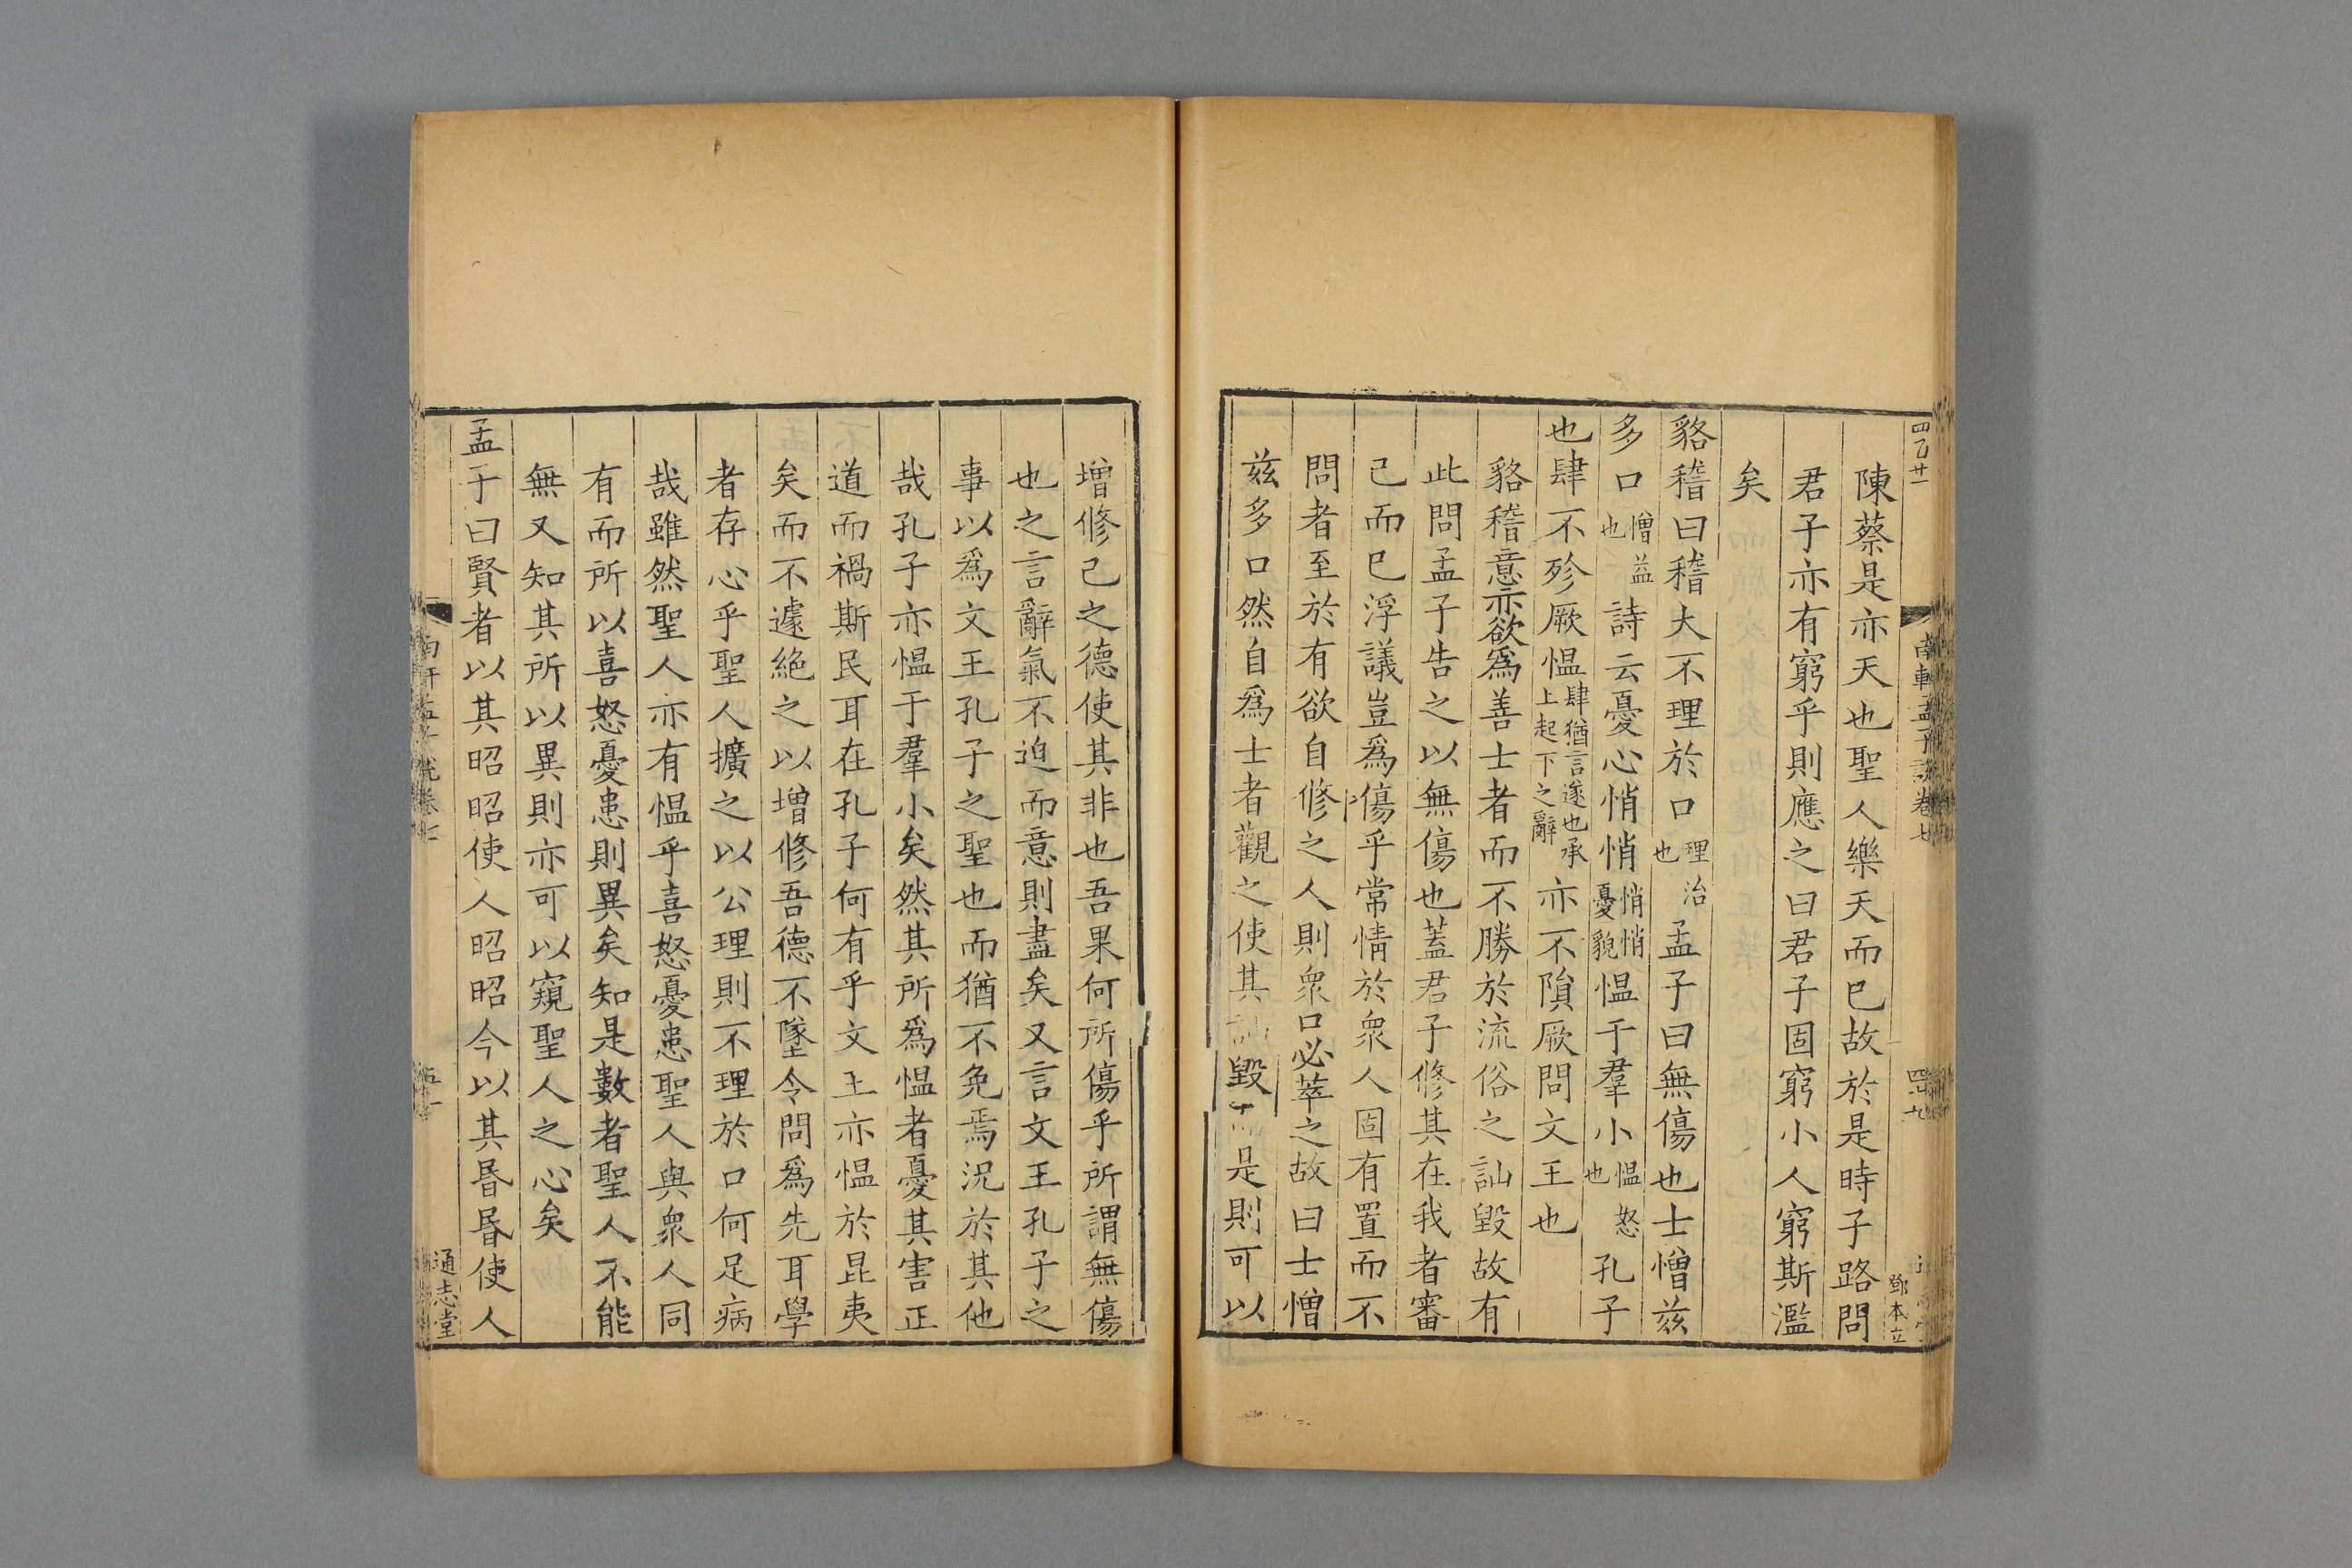 四百廿一
陳蔡是亦天也聖人樂天而已故於是時子路問
君子亦有窮乎則應之曰君子固窮小人窮斯濫
矣
貉稽曰稽大不理於口理治也孟子曰無傷也士憎茲
多口憎益也詩云憂心悄悄悄悄憂貌慍于羣小慍怒也孔子
也肆不殄厥慍肆猶言遂也承上起下之辭亦不隕厥問文王也
貉稽意亦欲為善士者而不勝於流俗之訕毀故有
此問孟子告之以無傷也蓋君子修其在我者審
己而已浮議豈為傷乎常情於衆人固有置而不
問者至於有欲自修之人則衆口必萃之故曰士憎
茲多口然自為士者觀之使其訕毀 是則可以
南軒孟子說卷七
四十九
鄧本立
增修己之德使其非也吾果何所傷乎所謂無傷
也之言辭氣不迫而意則盡矣又言文王孔子之
事以為文王孔子之聖也而猶不免焉況於其他
哉孔子亦慍于羣小矣然其所為慍者憂其害正
道而禍斯民耳在孔子何有乎文王亦慍於昆夷
矣而不遽絕之以增修吾德不墜令問為先耳學
者存心乎聖人擴之以公理則不理於口何足病
哉雖然聖人亦有慍乎喜怒憂患聖人與衆人同
有而所以喜怒憂患則異矣知是數者聖人不能
無又知其所以異則亦可以窺聖人之心矣
孟子曰賢者以其昭昭使人昭昭今以其昏昏使人
通志堂